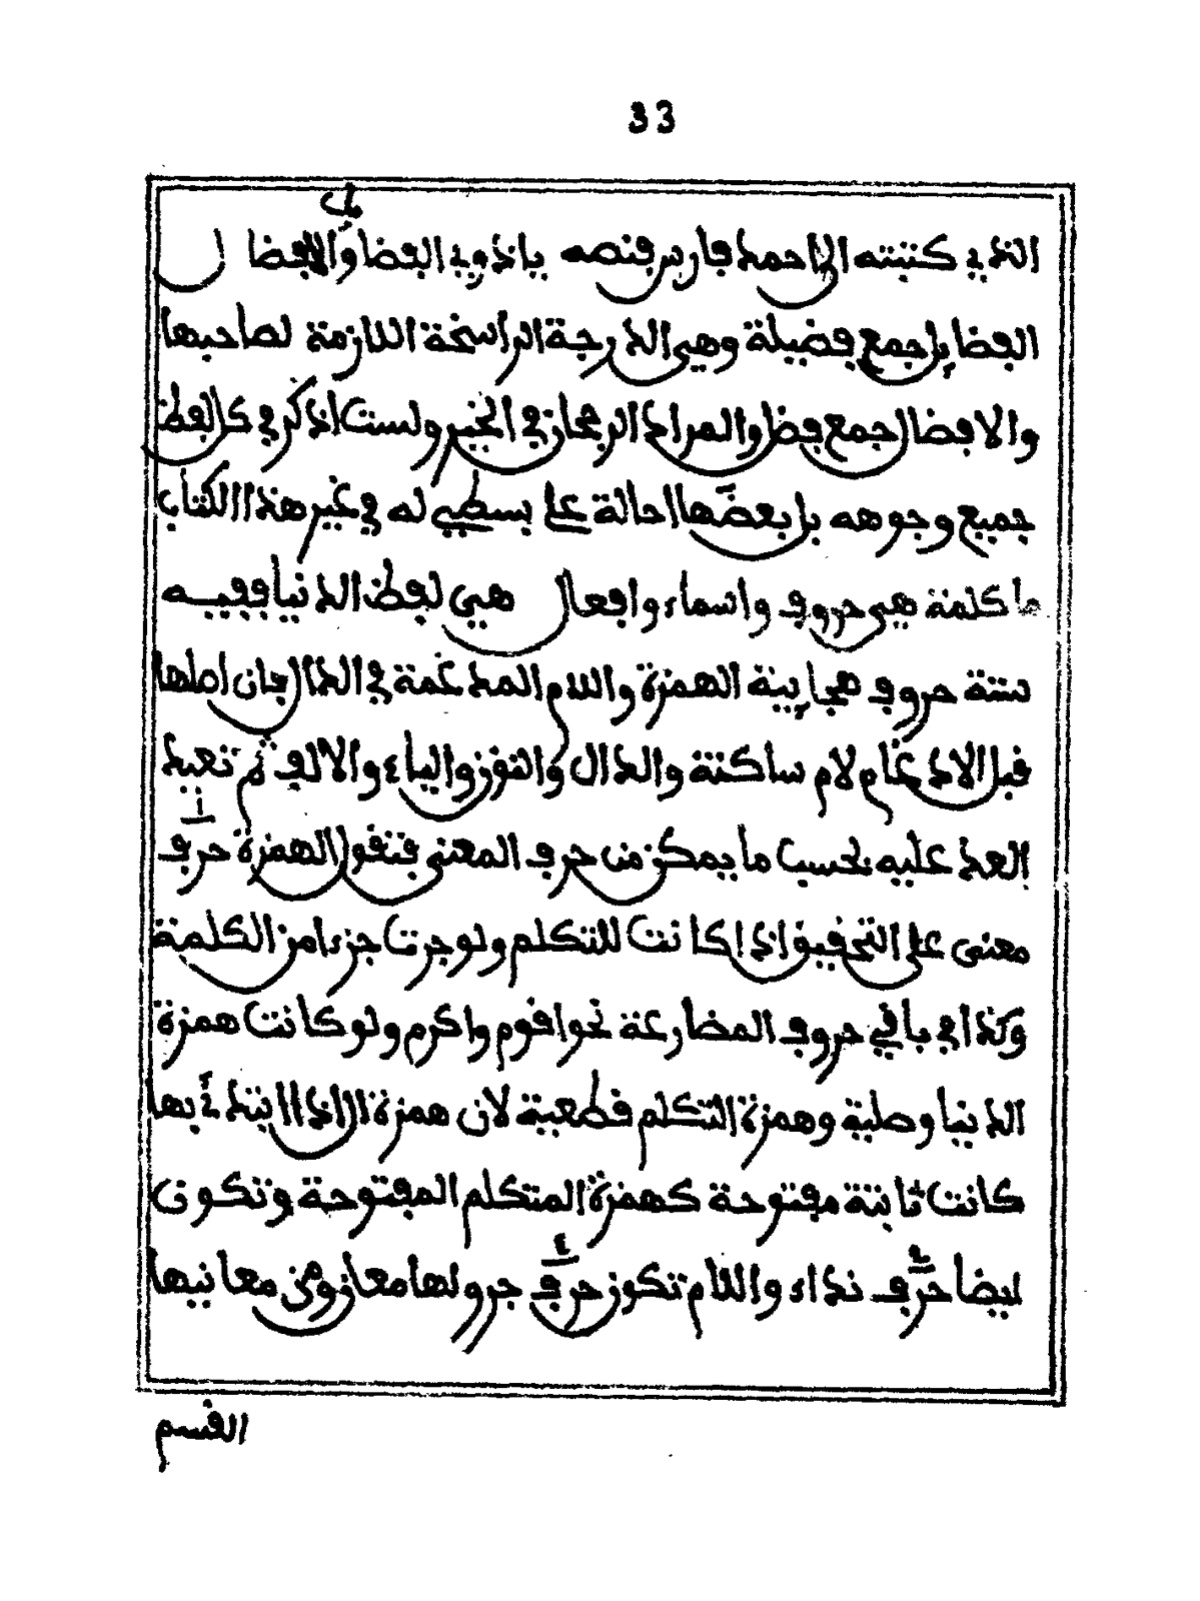 33
الذي كتبته الى احمد فارس فنصه ياذوي الفضائل والافضال
الفضايل جمع فضيلة وهي الدرجة الراسخة اللازمة لصاحبها
والافضال جمع فضل والمراد الرجحان في الخير ولست اذكر في كل لفظ
جميع وجوهه بل بعضها احالة على بسطي له في غير هذا الكتاب
ما كلمة هي حروف واسماء وافعال هي لفظ الدنيا ففيه
ستة حروف هجايية الهمزة واللام المدغمة في الدال فان اصلها
قبل الادغام لام ساكنة والدال والنون والياء والالف ثم نعيد
العد عليه بحسب ما يمكن من حرف المعنى فنقول الهمزة حرف
معنى على التحقيق اذا كانت للتكلم ولو جرت جزءا من الكلمة
وكذا في باقي حروف المضارعة نحو اقوم واكرم ولو كانت همزة
الدنيا وصلية وهمزة التكلم قطعية لان همزة ال اذا ابتدئ بها
كانت ثابتة مفتوحة كهمزة المتكلم المفتوحة وتكون
ايضا حرف نداء واللام تكون حرف جر ولها معان ومن معانيها
القسم